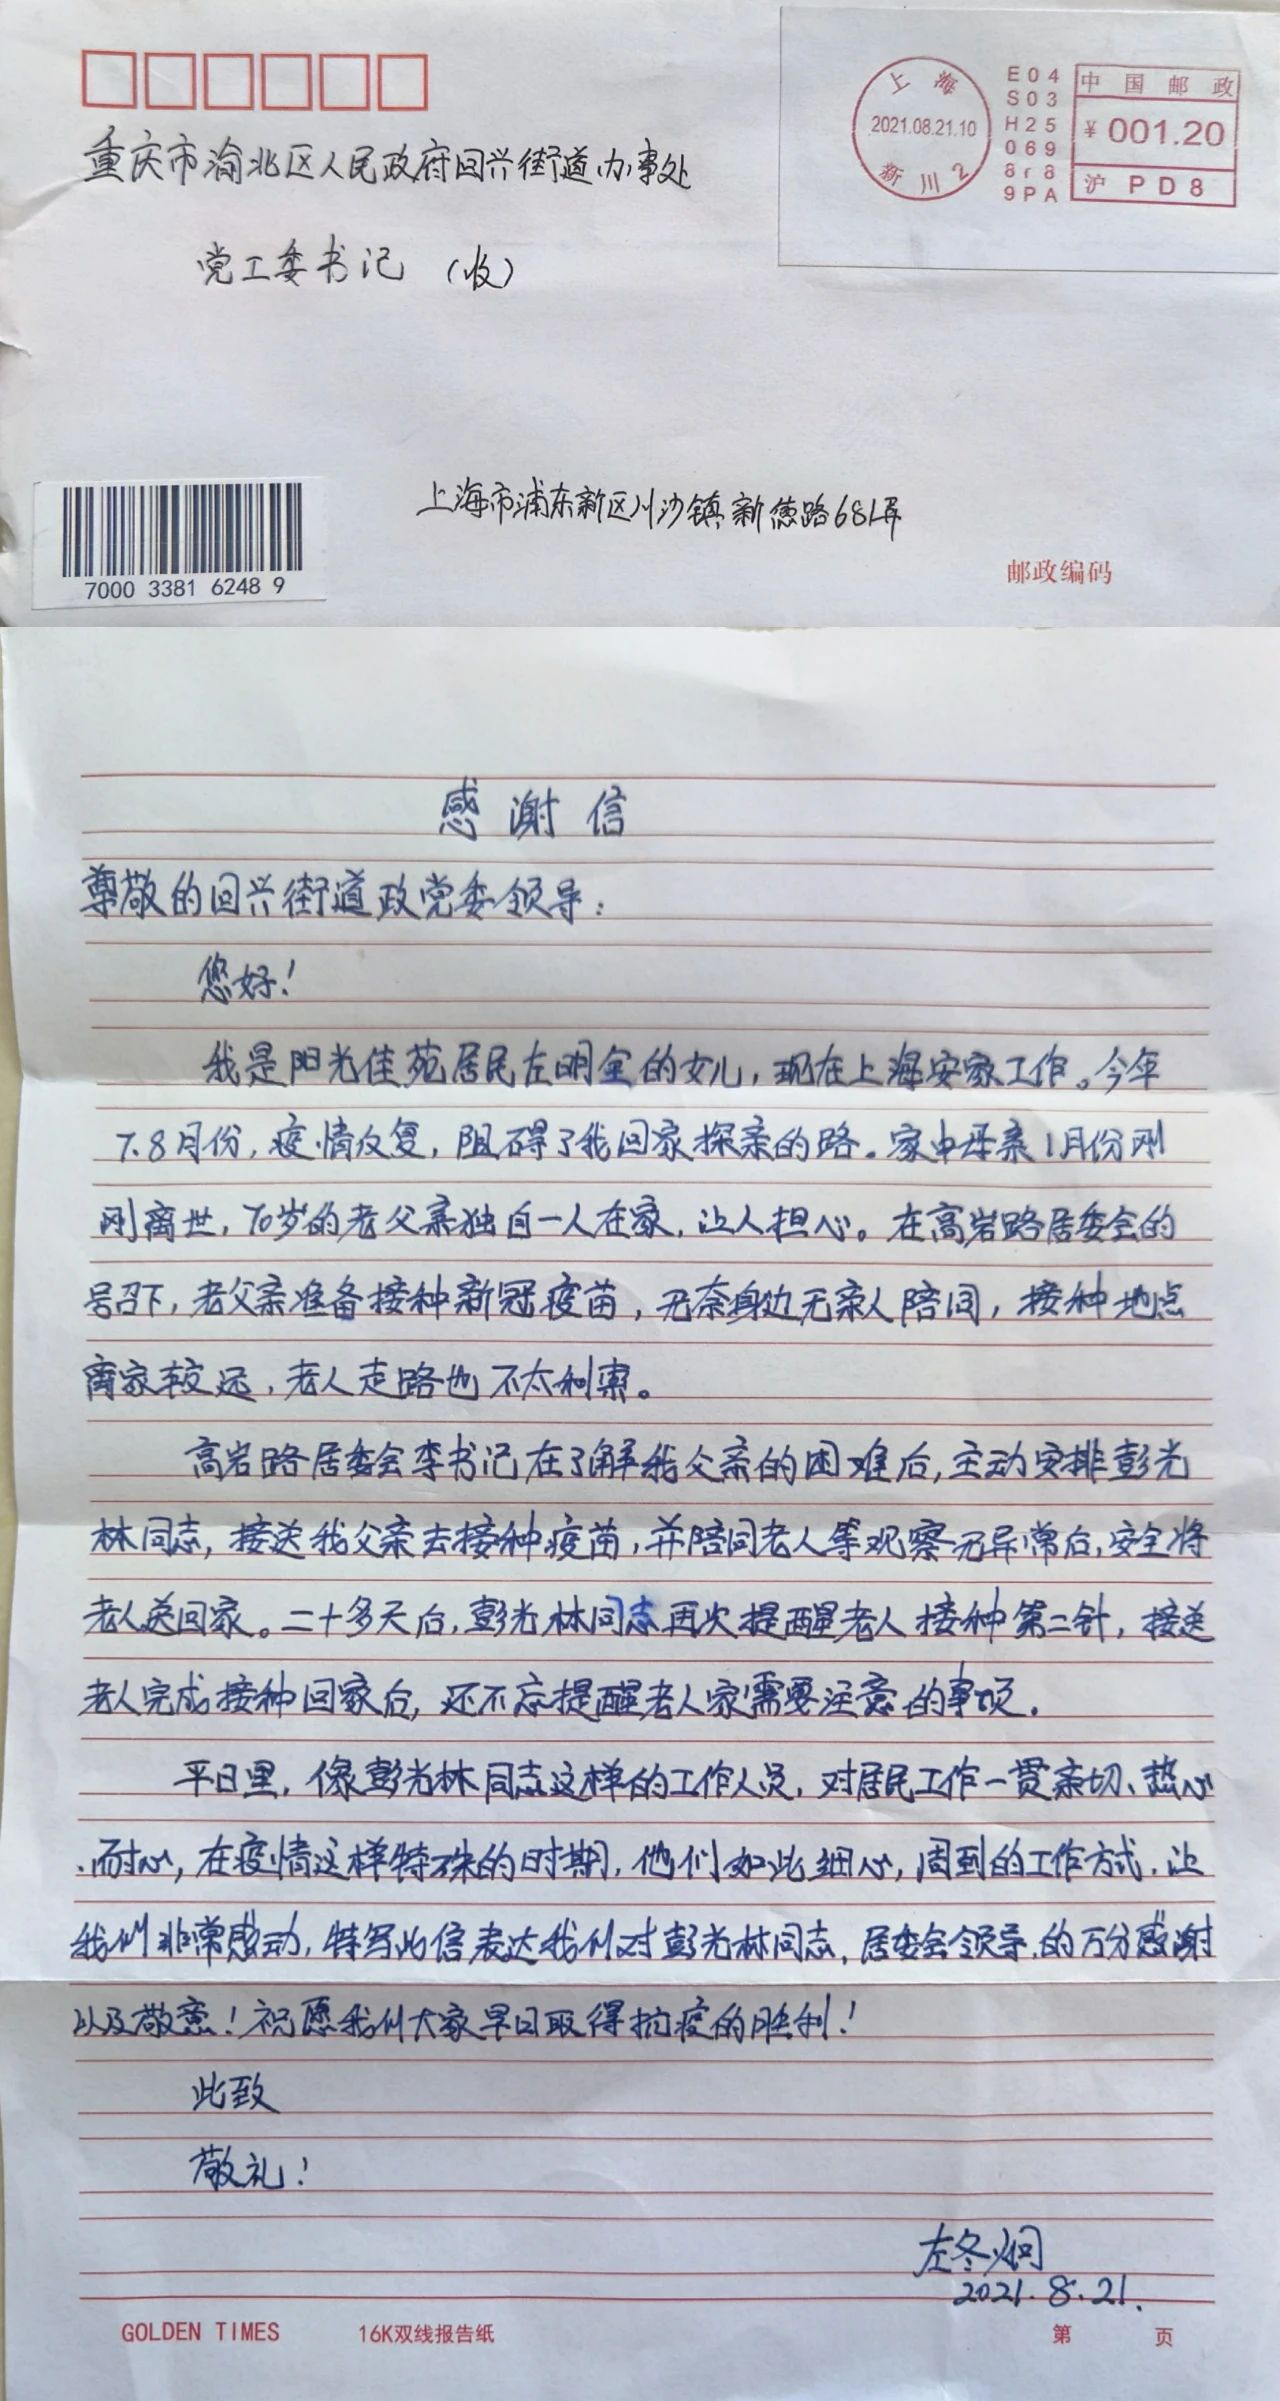 上海
2021.08.21.10
新川2
E04
S03
H25
069
8r8
9PA
中国邮政
¥001.20
沪 PD8
重庆市渝北区人民政府回兴街道办事处
党工委书记 (收)
上海市浦东新区川沙镇新德路681弄
7000 3381 6248 9
邮政编码
感谢信
尊敬的回兴街道政党委领导:
您好!
我是阳光佳苑居民左明全的女儿,现在上海安家工作。今年
7.8月份,疫情反复,阻碍了我回家探亲的路。家中母亲1月份刚
刚离世,70岁的老父亲独自一人在家,让人担心。在高岩路居委会的
号召下,老父亲准备接种新冠疫苗,无奈身边无亲人陪同,接种地点
离家较远,老人走路也不太利索。
高岩路居委会李书记在了解我父亲的困难后,主动安排彭光
林同志,接送我父亲去接种疫苗,并陪同老人等观察无异常后,安全将
老人送回家。二十多天后,彭光林同志再次提醒老人接种第二针,接送
老人完成接种回家后,还不忘提醒老人家需要注意的事项.
平日里,像彭光林同志这样的工作人员,对居民工作一贯亲切、热心
、耐心,在疫情这样特殊的时期,他们如此细心,周到的工作方式,让
我们非常感动,特写此信表达我们对彭光林同志,居委会领导的万分感谢
以及敬意!祝愿我们大家早日取得抗疫的胜利!
此致
敬礼!
左冬炯
2021.8.21.
GOLDEN TIMES 16K双线报告纸 第 页